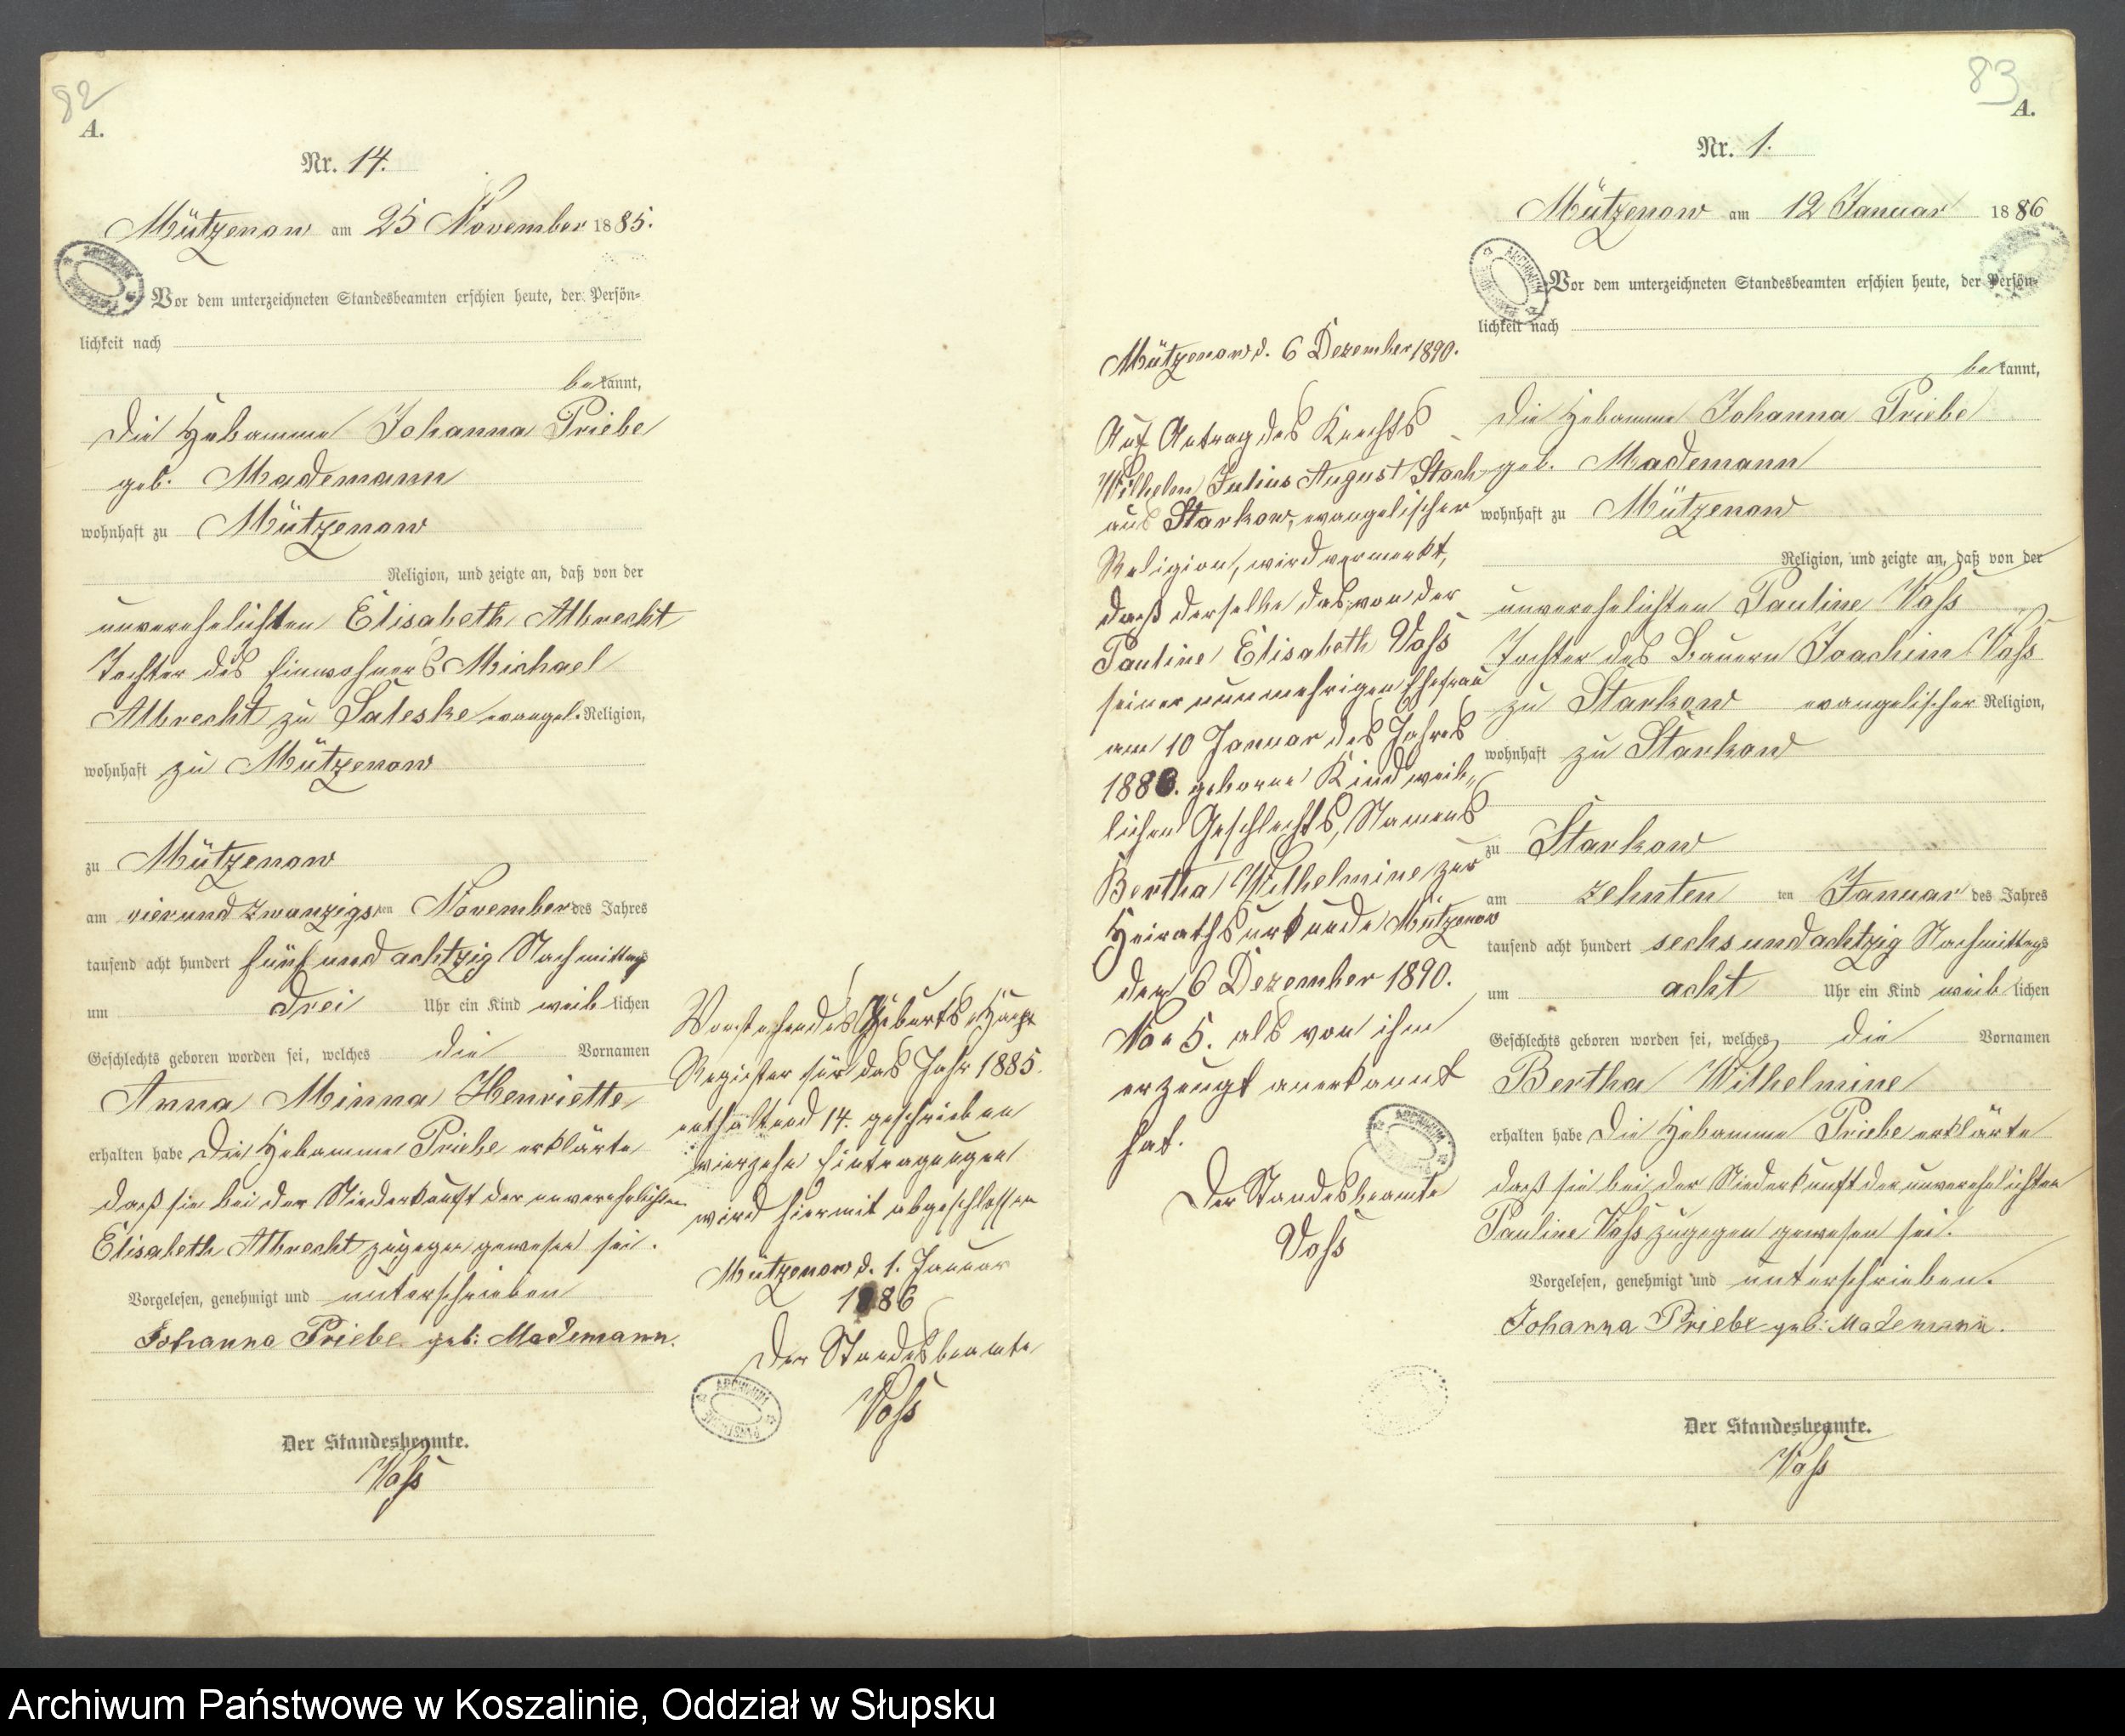 82
A.
Nr. 14.
Mützenow am 25 November 1885.
Vor dem unterzeichneten Standesbeamten erschien heute, der Persön=
lichkeit nach
bekannt,
die Hebamme Johanna Priebe
geb. Mademann
wohnhaft zu Mützenow
Religion, und zeigte an, daß von der
unverehelichten Elisabeth Albrecht
Tochter des Einwohners Michael
Albrecht zu Saleske evangel. Religion,
wohnhaft zu Mützenow
zu Mützenow
am vierundzwanzigsten November des Jahres
tausend acht hundert fünf und achtzig Nachmittags
um drei Uhr ein Kind weiblichen
Geschlechts geboren worden sei, welches die Vornamen
Anna Minna Henriette
erhalten habe Die Hebamme Priebe erklärte
daß sie bei der Niederkunft der unverehelichten
Elisabeth Albrecht zugegen gewesen sei.
Vorgelesen, genehmigt und unterschrieben
Johanna Priebe geb: Mademann.
Der Standesbeamte.
Voß
Vorstehendes Geburts-Haupt
Register für das Jahr 1885.
enthaltend 14. geschrieben
vierzehn Eintragungen
wird hiermit abgeschlossen
Mützenow d. 1. Januar
1886
Der Standesbeamte
Voß
ARCHIWUM
83
A.
Nr. 1.
Mützenow am 12 Januar 1886
Vor dem unterzeichneten Standesbeamten erschien heute, der Persön=
lichkeit nach
bekannt,
die Hebamme Johanna Priebe
geb. Mademann
wohnhaft zu Mützenow
Religion, und zeigte an, daß von der
unverehelichten Pauline Voß
Tochter des Bauern Joachim Voß
zu Starkow evangelischer Religion,
wohnhaft zu Starkow
zu Starkow
am zehnten ten Januar des Jahres
tausend acht hundert sechs und achtzig Nachmittags
um acht Uhr ein Kind weiblichen
Geschlechts geboren worden sei, welches die Vornamen
Bertha Wilhelmine
erhalten habe Die Hebamme Priebe erklärte
daß sie bei der Niederkunft der unverehelichten
Pauline Voß zugegen gewesen sei.
Vorgelesen, genehmigt und unterschrieben.
Johanna Priebe geb: Mademann.
Der Standesbeamte.
Voß
Mützenow d. 6 Dezember 1890.
Auf Antrag des Knechts
Wilhelm Julius August Stach
aus Starkow, evangelischer
Religion, wird vermerkt,
daß derselbe das von der
Pauline Elisabeth Voß
seiner nunmehrigen Ehefrau
am 10 Januar des Jahres
1886. geborne Kind weib„
lichen Geschlechts, Namens
Bertha Wilhelmine zur
Heirathsurkunde Mützenow
den 6 Dezember 1890.
No 5. als von ihm
erzeugt anerkannt
hat.
Der Standesbeamte
Voß
ARCHIWUM
Archiwum Państwowe w Koszalinie, Oddział w Słupsku